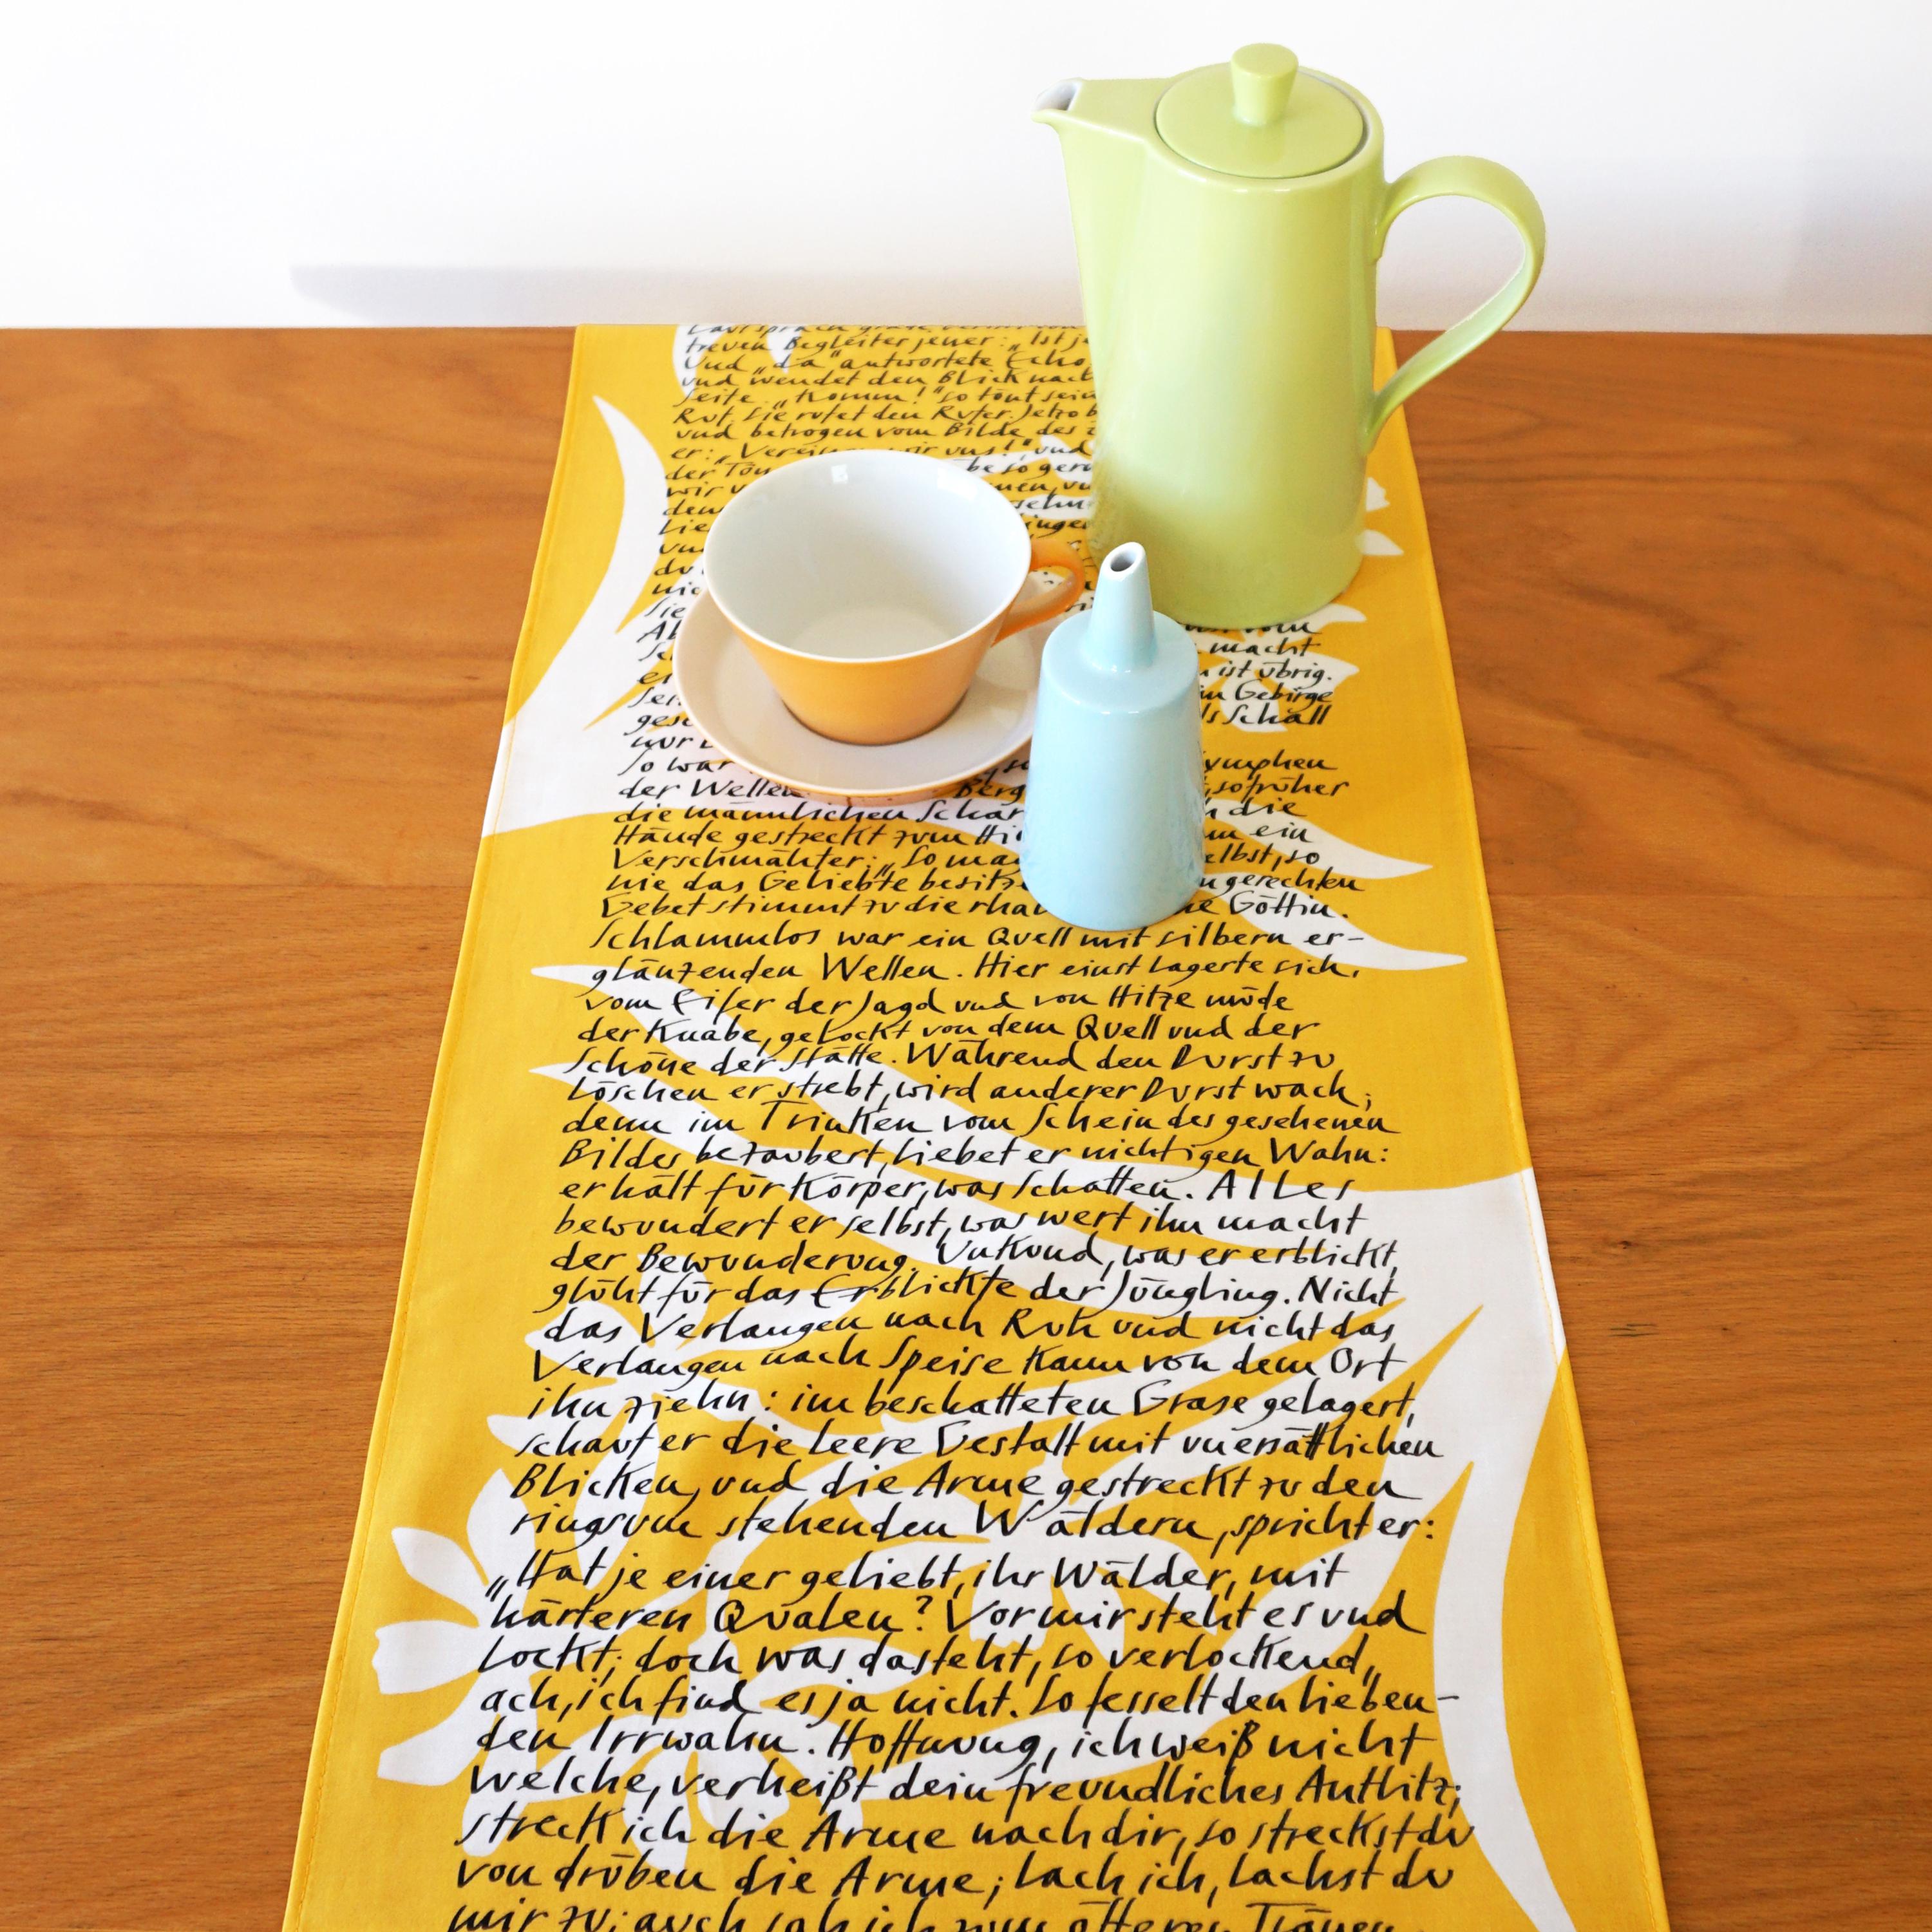 treuen Begleiter jener: „Ist je
Und „da" antwortete Echo
und wendet den Blick nach
Seite. „Komm!" so tönt sein
Ruf. Sie rufet den Rufer. Jetzo b
und betrogen vom Bilde des
er: „Verein wir uns!", und
der Tön be so gern
wir nen, vu
den sehn
Lie inge
vu
du
nic
Sie
Al vom
Sc macht
ei ist übrig.
Sei im Gebirge
gesc ls Schall
nur
So war ymphen
der Wellen Berg , so früher
die männlichen Schar h die
Hände gestreckt zum Hi m ein
Verschmähter: „So ma elbst, so
nie das Geliebte besitze n gerechten
Gebet stimmt zu die rha he Göttin.
Schlammlos war ein Quell mit silbern er-
glänzenden Wellen. Hier einst lagerte sich,
vom Eifer der Jagd und von Hitze müde
der Knabe, gelockt von dem Quell und der
Schöne der Stätte. Während den Durst zu
löschen er strebt, wird anderer Durst wach;
denn im Trinken vom Schein des gesehenen
Bildes bezaubert, liebet er nichtigen Wahn:
er hält für Körper, was Schatten. Alles
bewundert er selbst, was wert ihn macht
der Bewunderung. Unkund, was er erblickt,
glüht für das Erblickte der Jüngling. Nicht
das Verlangen nach Ruh und nicht das
Verlangen nach Speise kann von dem Ort
ihn ziehn: im beschatteten Grase gelagert,
schaut er die leere Gestalt mit unersättlichen
Blicken, und die Arme gestreckt zu den
ringsum stehenden Wäldern, spricht er:
„Hat je einer geliebt, ihr Wälder, mit
härteren Qualen? Vor mir steht es und
lockt; doch was dasteht, so verlockend,
ach, ich find es ja nicht. So fesselt den lieben-
den Irrwahn. Hoffnung, ich weiß nicht
welche, verheißt dein freundliches Antlitz;
streck ich die Arme nach dir, so streckst du
von drüben die Arme; lach ich, lachst du
mir zu; auch sah ich zum öfteren Tränen